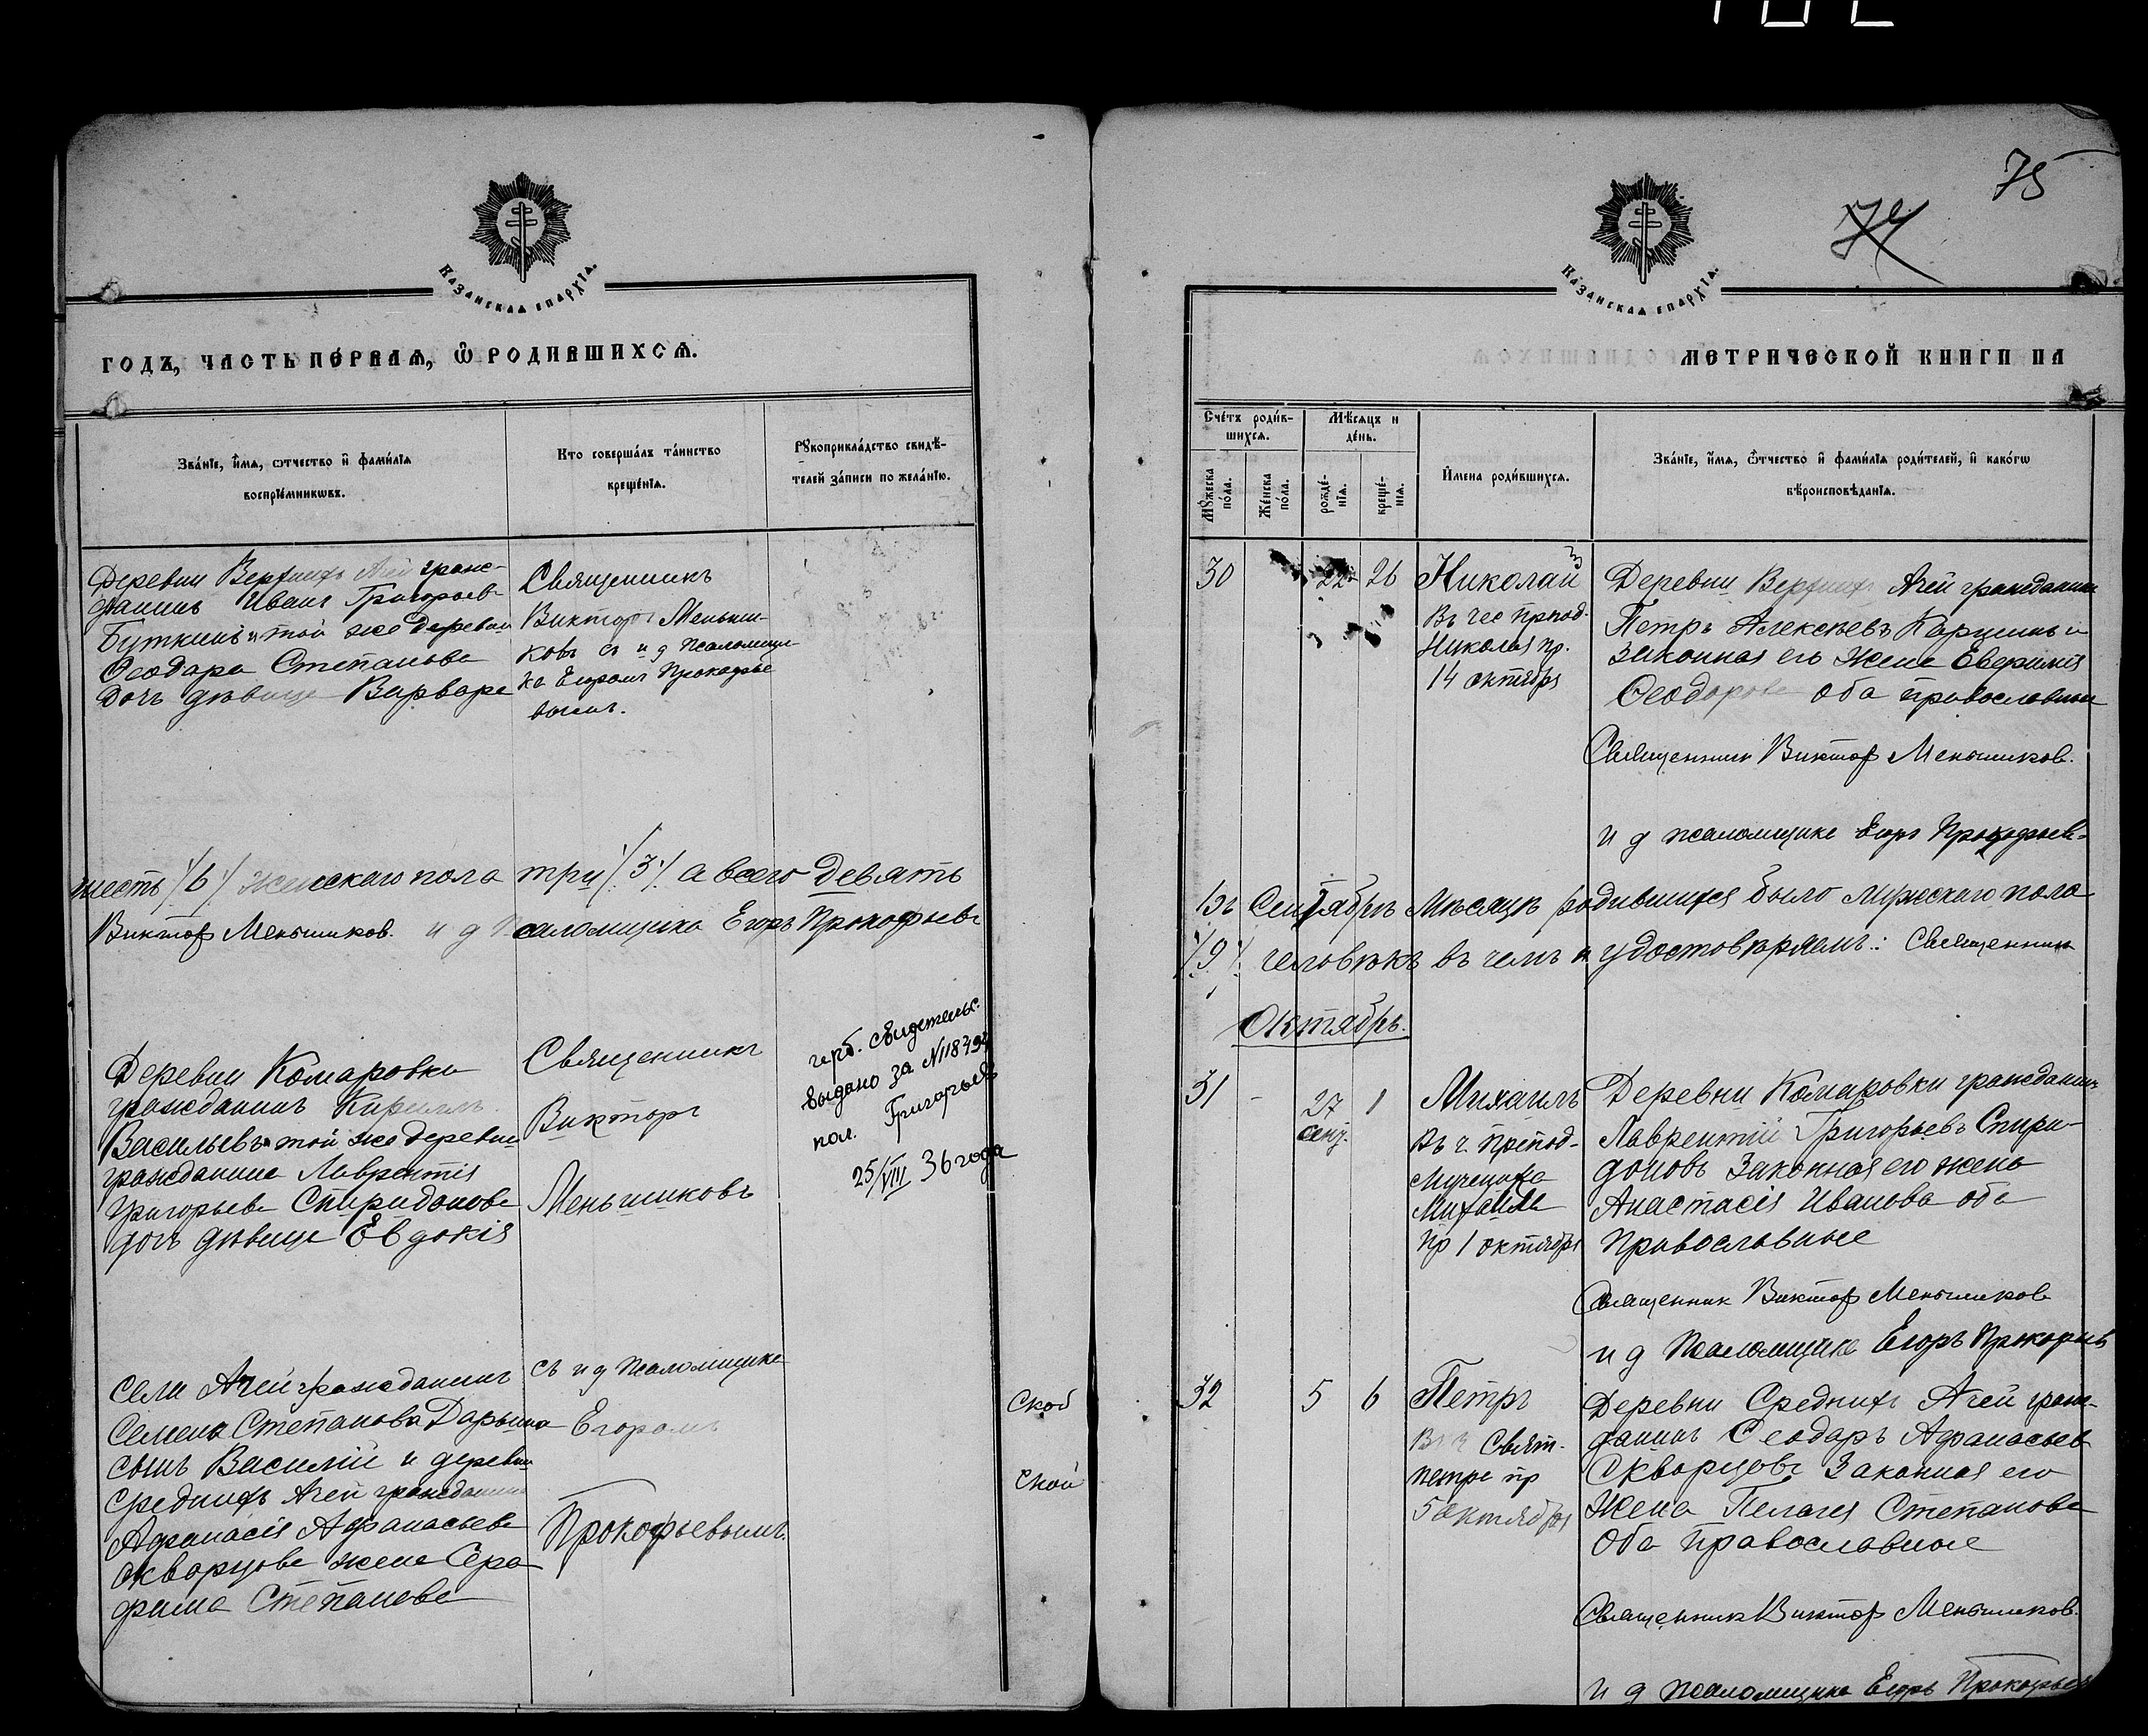 КАЗАНСКАЯ ЕПАРХІЯ.
ГОДЪ, ЧАСТЬ ПЕРВАЯ, Ѿ РОДИВШИХСЯ.
Званїе, имя, отчество и фамилїя
воспрїемниковъ.
Кто совершалъ таинство
крещенїя.
Рꙋкоприкладство свидѣ-
телей записи по желанїю.
Деревни Верхнихъ Ачей граж-
данинъ Иванъ Григорьевъ
Буткинъ и той же деревни
Ѳеодора Степанова
дочь дѣвица Варвара
Священникъ
Викторъ Меньши-
ковъ съ и д псаломщи-
ка Егоромъ Прокофье
вымъ.
шесть /6/ женскаго пола три /3/. а всего девять
Виктор Меньшиков. и д Псаломщика Егоръ Прокофьевъ
Деревни Комаровки
гражданинъ Кириллъ
Васильевъ и той же деревни
гражданина Лаврентія
Григорьева Спиридонова
дочь дѣвица Евдокія
Священникъ
Викторъ
Меньшиковъ
герб. свидетельс.
выдано за №118794
пол. Григорьевъ
25/VIII 36 года
Села Ачей гражданинъ
Семена Степанова Дарьина
сынъ Василій и деревни
Среднихъ Ачей гражданина
Афанасія Афанасьева
Скворцова жена Сера
фима Степанова
съ и д псаломщика
Егоромъ
Прокофьевымъ.
Ской
Ской
75
74
КАЗАНСКАЯ ЕПАРХІЯ.
МЕТРИЧЕСКОЙ КНИГИ НА
Счетъ родив-
шихся.
Мѣсяцъ и
день.
Мꙋжеска
пола.
Женска
пола.
рожде-
нїя.
креще-
нїя.
Имена родившихся.
Званїе, имя, ѿчество и фамилїя родителей, и какогѡ
вѣроисповѣданїя.
30 22 26 Николай
Въ чес препод.
Николая пр.
14 октября
Деревни Верхнихъ Ачей гражданинъ
Петръ Алексѣевъ и
законная его жена Евфимія
Ѳеодорова оба православные
Священник Виктор Меньшиков.
и д псаломщика Егоръ Прокофьевъ
Въ Сентябрѣ Мѣсяцѣ родившихся было Мужскаго пола
/9/ человѣкъ въ чемъ и удостовѣряемъ: Священник
Октябрь.
31 - 27 1 Михаилъ
сент.
Въ ч. препод-
мученика
Михаила
пр 1 октября
Деревни Комаровки гражданинъ
Лаврентій Григорьевъ Спири-
доновъ Законная его жена
Анастасія Иванова оба
православные
Священник Виктор Меньшиков
и д Псаломщика Егоръ Прокофьевъ
32 5 6 Петръ
Въ ч Свят.
Петра пр
5 октября
Деревни Среднихъ Ачей граж-
данинъ Ѳеодоръ Афанасьев
Скворцовъ Законная его
жена Пелагея Степанова
Оба Православные
Священник Виктор Меньшиков.
и д псаломщика Егоръ Прокофьев